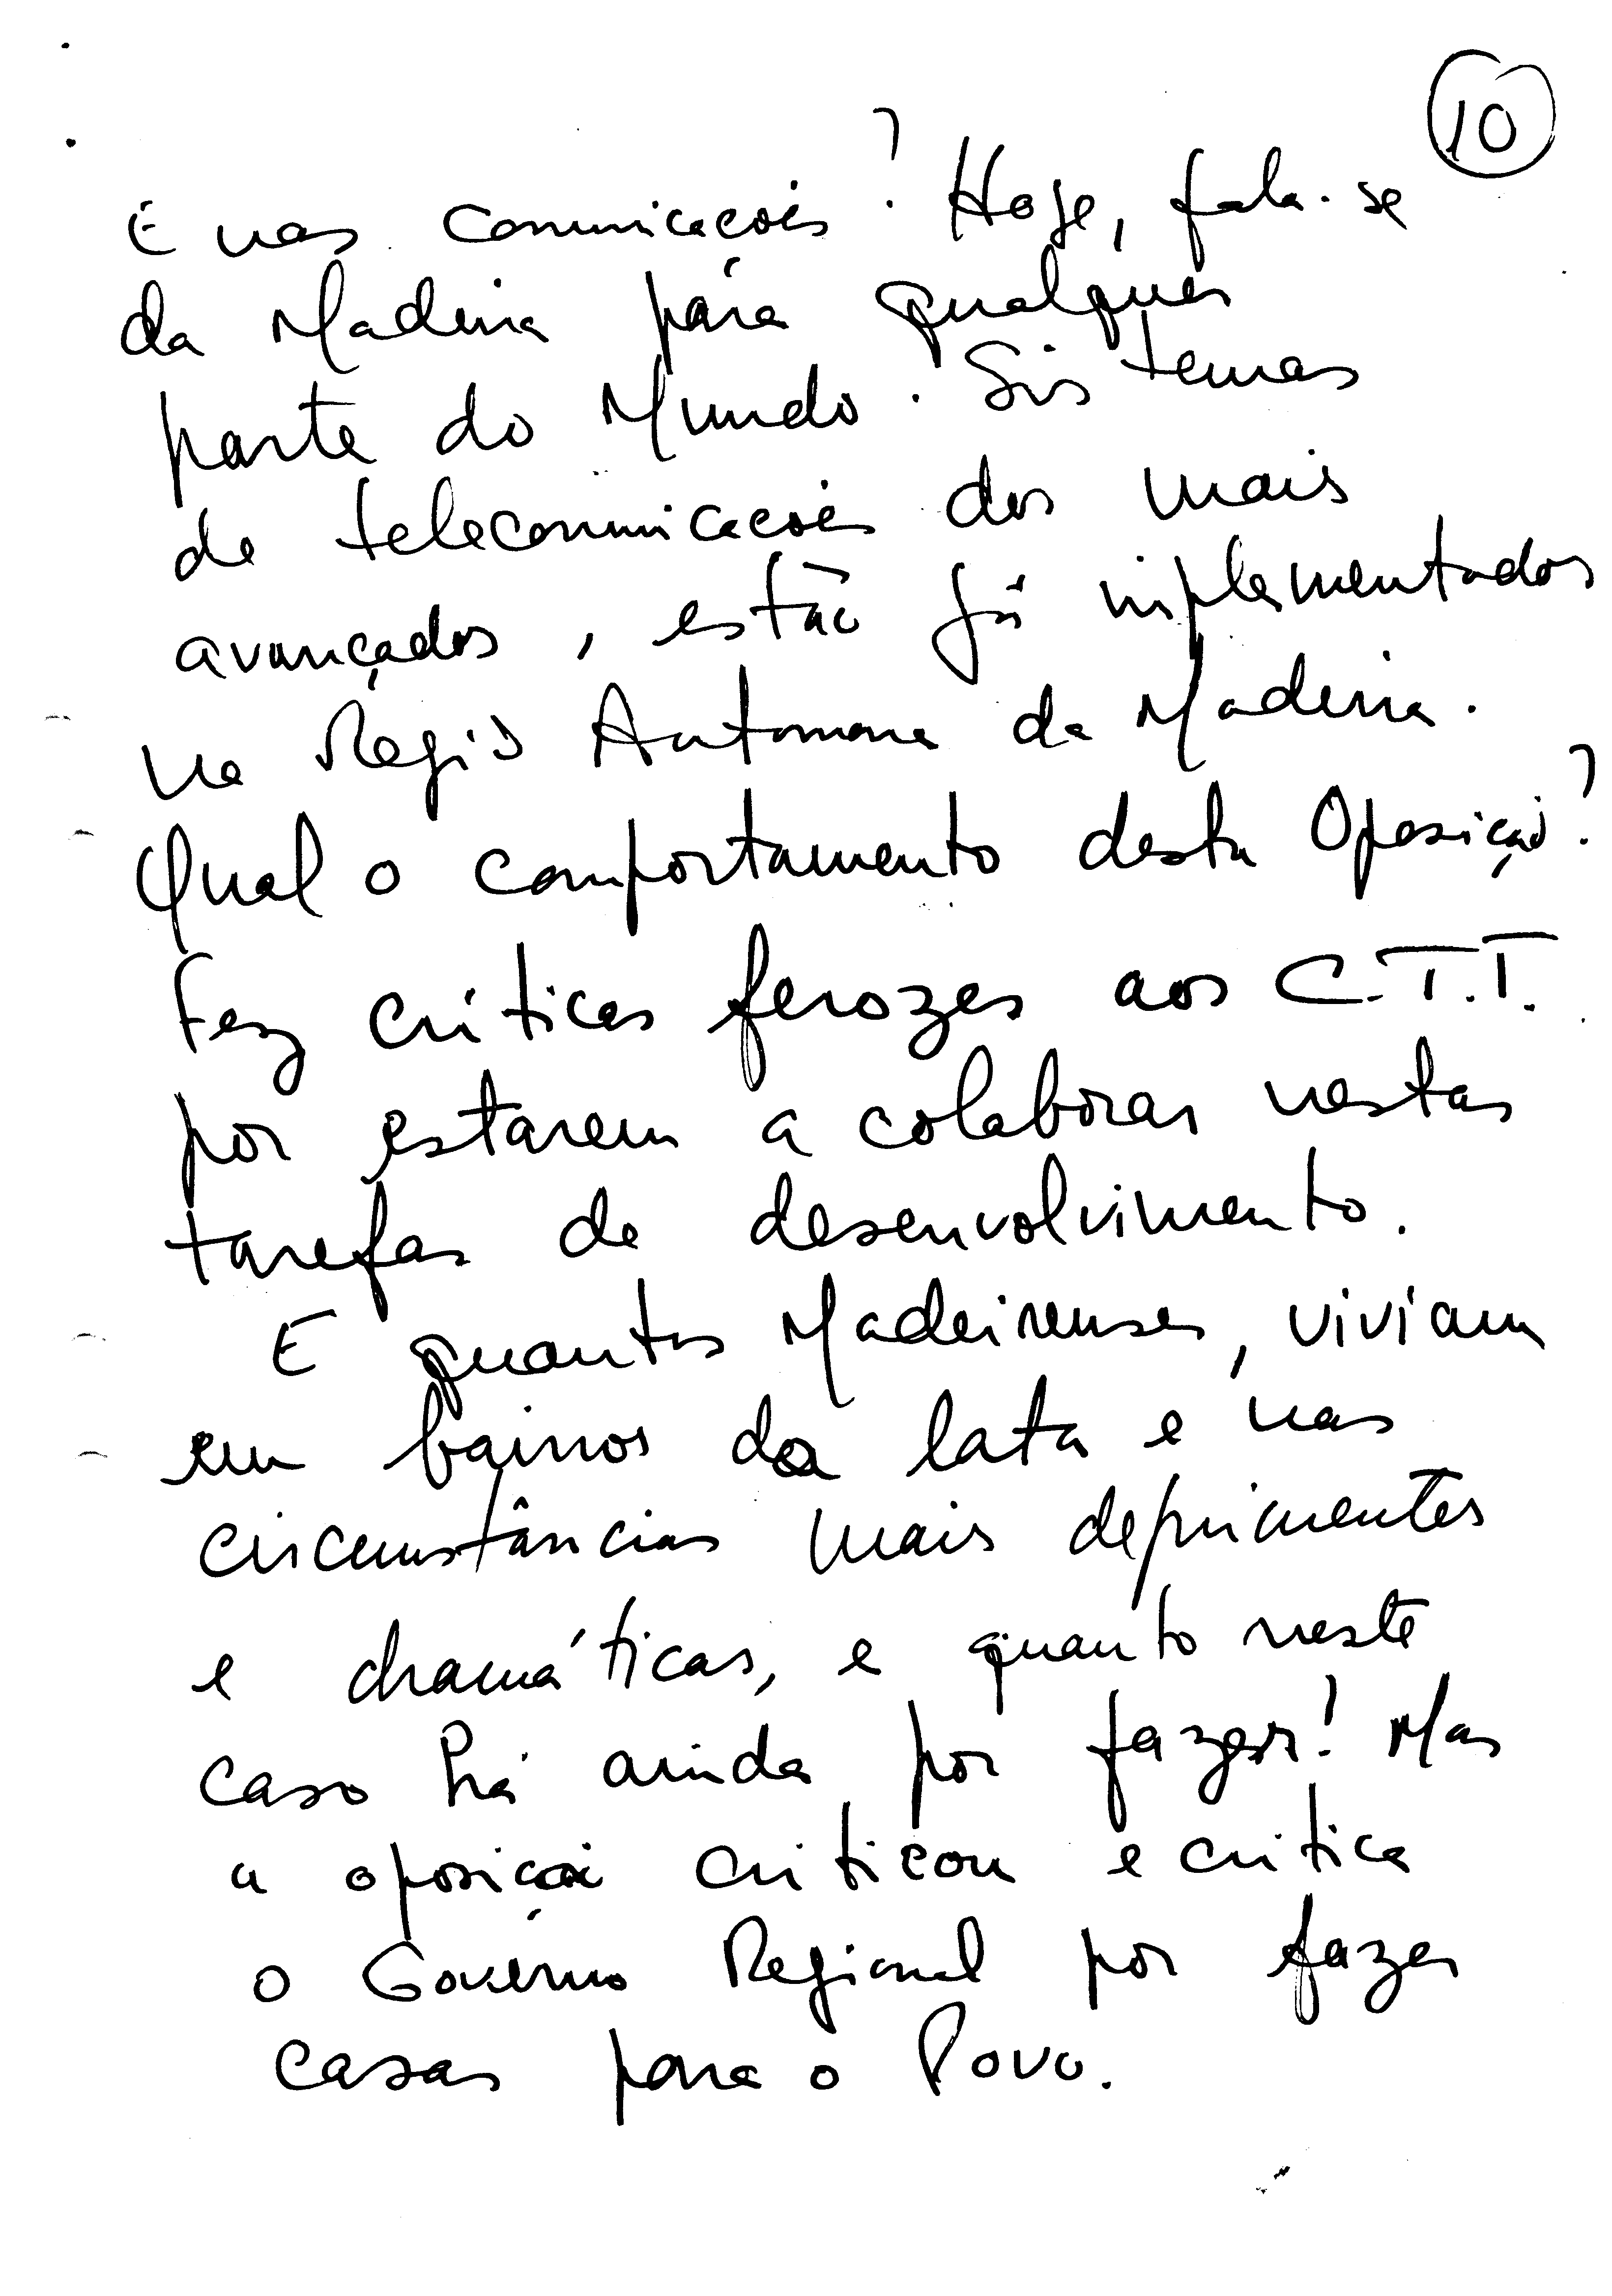 10
E nas comunicações? Hoje, fala-se
da Madeira para qualquer
parte do Mundo. Sistemas
de telecomunicações dos mais
avançados, estão já implementados
na Região Autonoma da Madeira.
Qual o comportamento desta Oposição?
Fez criticas ferozes aos C.T.T.
por estarem a colaborar nestas
tarefas de desenvolvimento.
E quantos Madeirenses, viviam
em bairros da lata e nas
circunstâncias mais deprimentes
e dramáticas, e quanto neste
caso há ainda por fazer! Mas
a oposição criticou e critica
o Govêrno Regional por fazer
casas para o Povo.